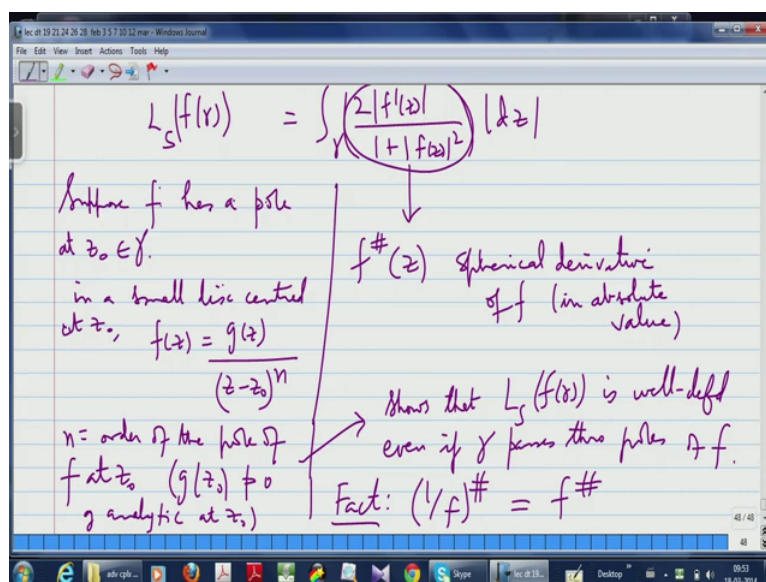 lec dt 19 21 24 26 28 feb 3 5 7 10 12 mar - Windows Journal
File Edit View Insert Actions Tools Help
L_S(f(γ)) = ∫_γ 2|f'(z)| / (1+|f(z)|^2) |dz|
Suppose f has a pole
at z_0 ∈ γ.
in a small disc centred
at z_0, f(z) = g(z) / (z-z_0)^n
n = order of the pole of
f at z_0 (g(z_0) ≠ 0
g analytic at z_0)
f^#(z) spherical derivative
of f (in absolute
value)
Shows that L_S(f(γ)) is well-defd
even if γ passes thro poles of f.
Fact: (1/f)^# = f^#
48/48
48
adv cplx...
Skype
lec dt 19...
Desktop
09:53
18-02-2014